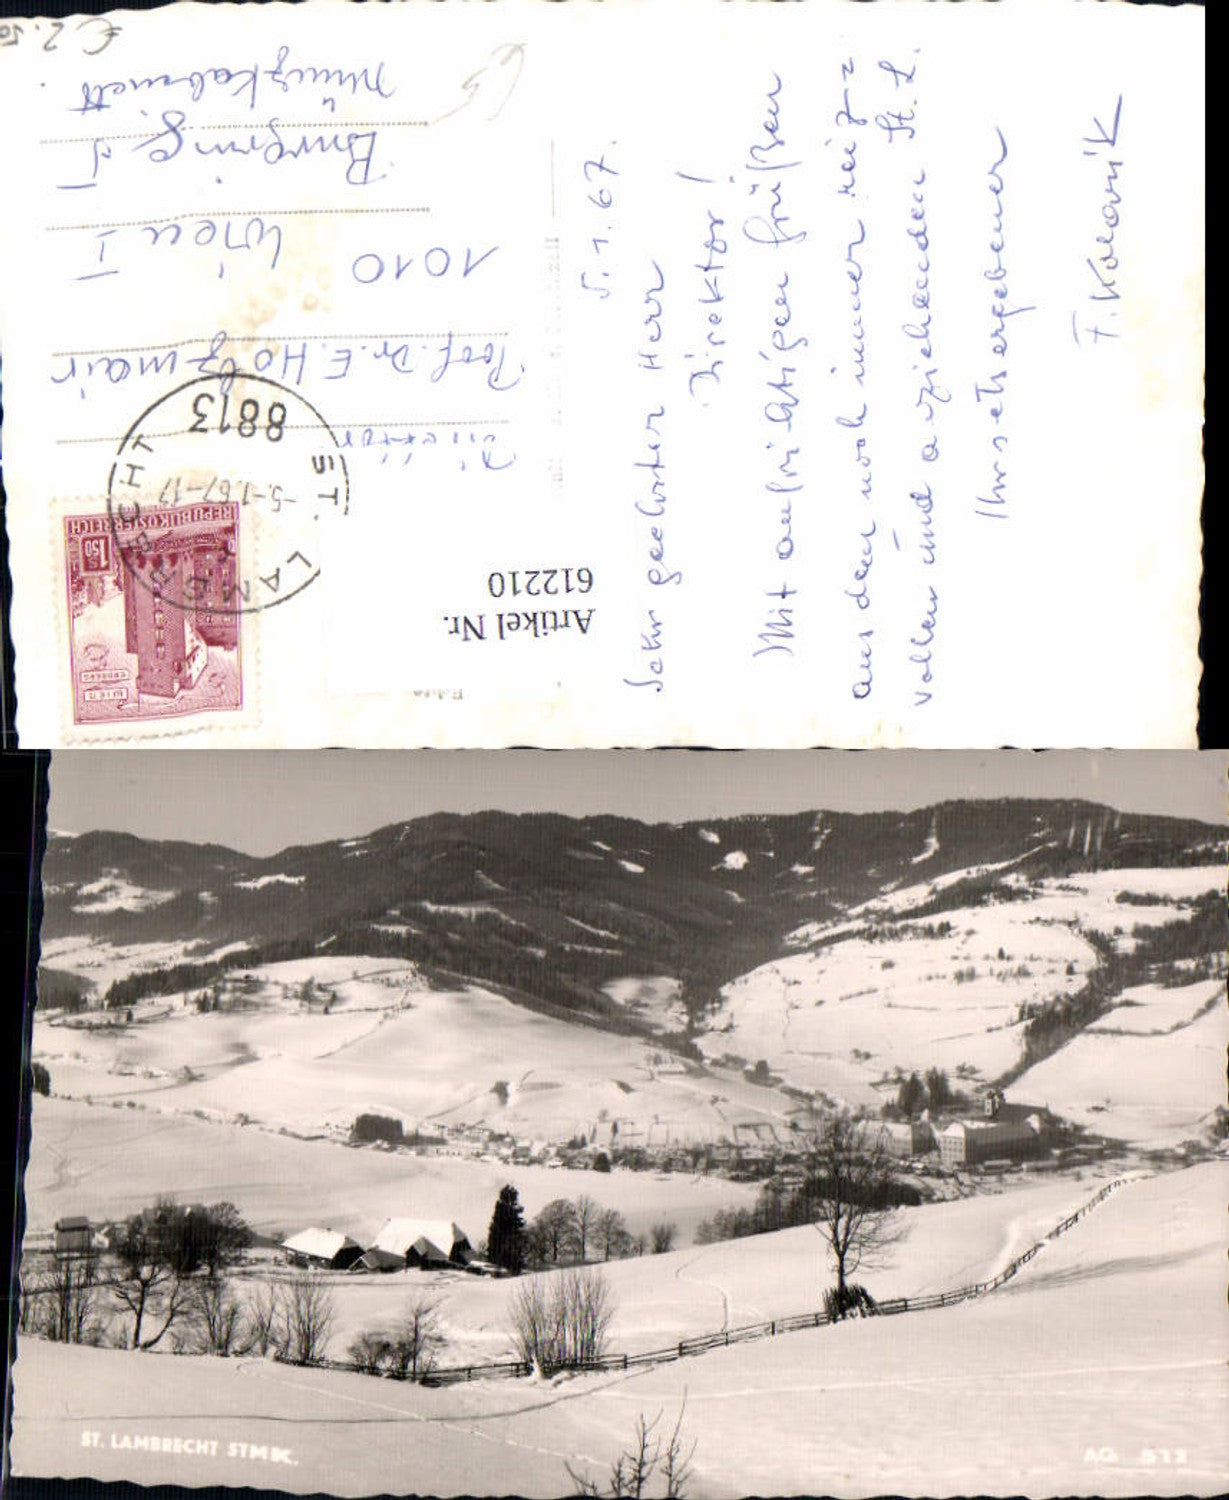 5.1.67.
Sehr geehrter Herr
Direktor!
Mit aufrichtigen Grüßen
aus dem noch immer reiz=
vollen und anziehenden St. L.
Ihr sehr ergebener
F. Kolovrik
Direktor
Prof. Dr. E. Holzmair
1010 Wien I
Burgring 5
Münzkabinett.
€ 2.50
65
ST. LAMBRECHT
8813
-5.-1.67-17
REPUBLIK ÖSTERREICH
S 1.50
WIEN
ERDBERG
Artikel Nr.
612210
ST. LAMBRECHT STMK.
AG 512